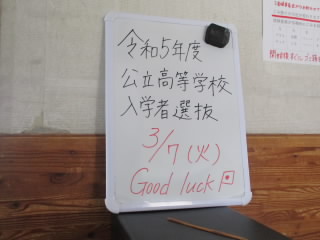 令和5年度
公立高等学校
入学者選抜
3/7(火)
Good luck